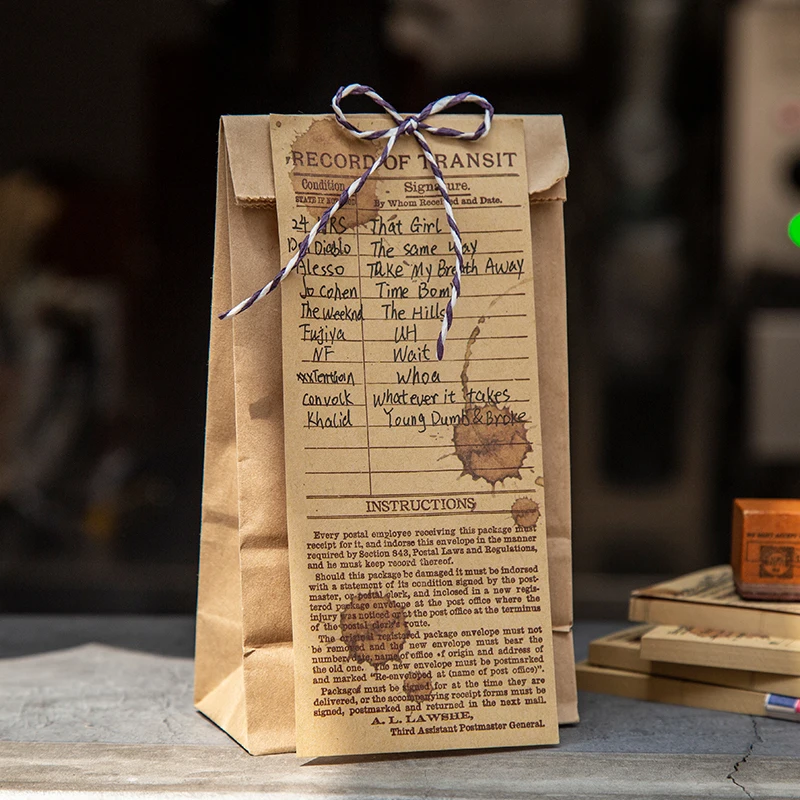 RECORD OF TRANSIT
Condition Signature.
By Whom Received and Date.
24 HRS That Girl
Don Diablo The same way
Alesso Take My Breath Away
Jo Cohen Time Bomb
The Weeknd The Hills
Fujiya UH
NF Wait
xxxTentacion whoa
convolk whatever it takes
Khalid Young Dumb & Broke
INSTRUCTIONS
Every postal employee receiving this package must
receipt for it, and indorse this envelope in the manner
required by Section 843, Postal Laws and Regulations,
and he must keep record thereof.
Should this package be damaged it must be indorsed
with a statement of its condition signed by the post-
master, or postal clerk, and inclosed in a new regis-
tered package envelope at the post office where the
injury was noticed or at the post office at the terminus
of the postal clerk's route.
The original registered package envelope must not
be removed and the new envelope must bear the
number, date, name of office of origin and address of
the old one. The new envelope must be postmarked
and marked "Re-enveloped at (name of post office)".
Package must be signed for at the time they are
delivered, or the accompanying receipt forms must be
signed, postmarked and returned in the next mail.
A. L. LAWSHE,
Third Assistant Postmaster General.